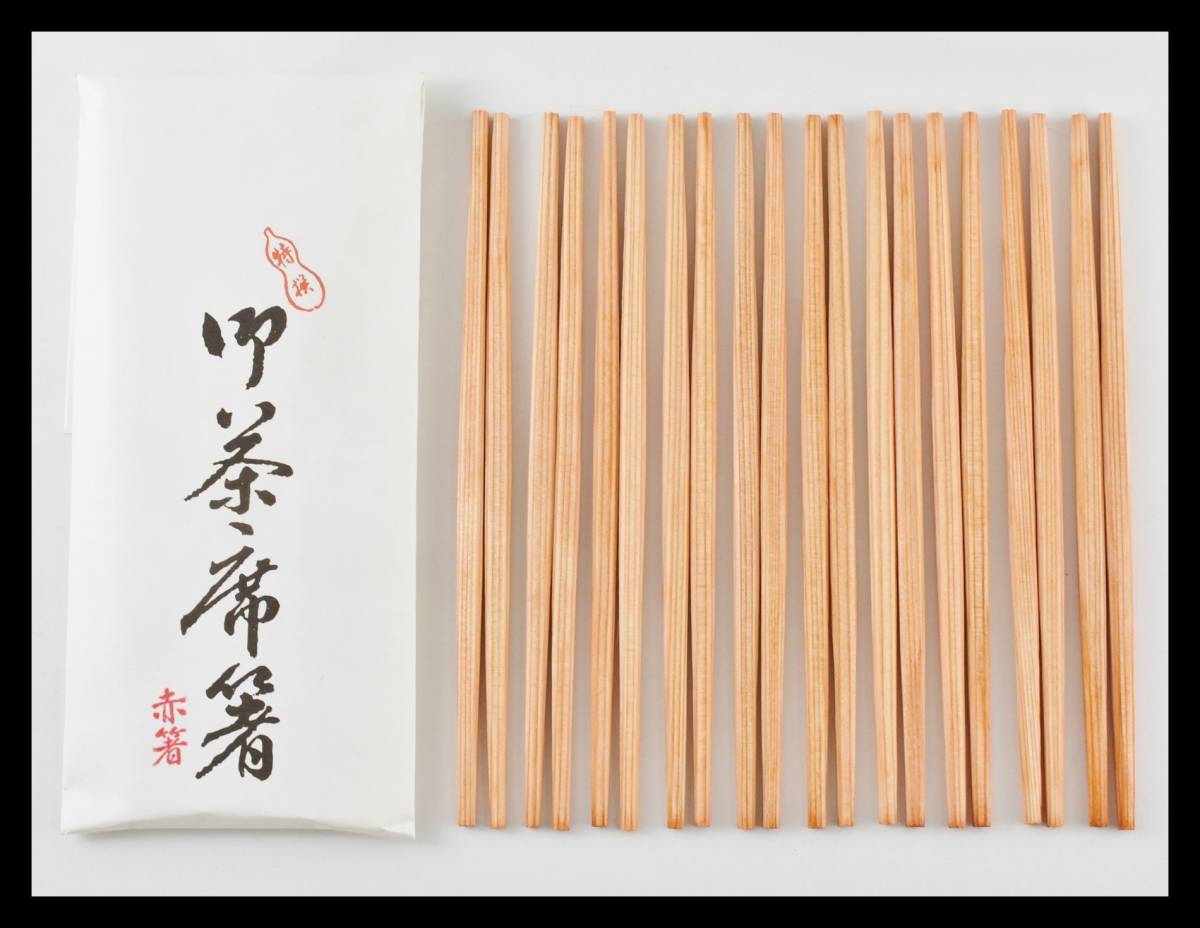 特撰
御茶席箸
赤箸